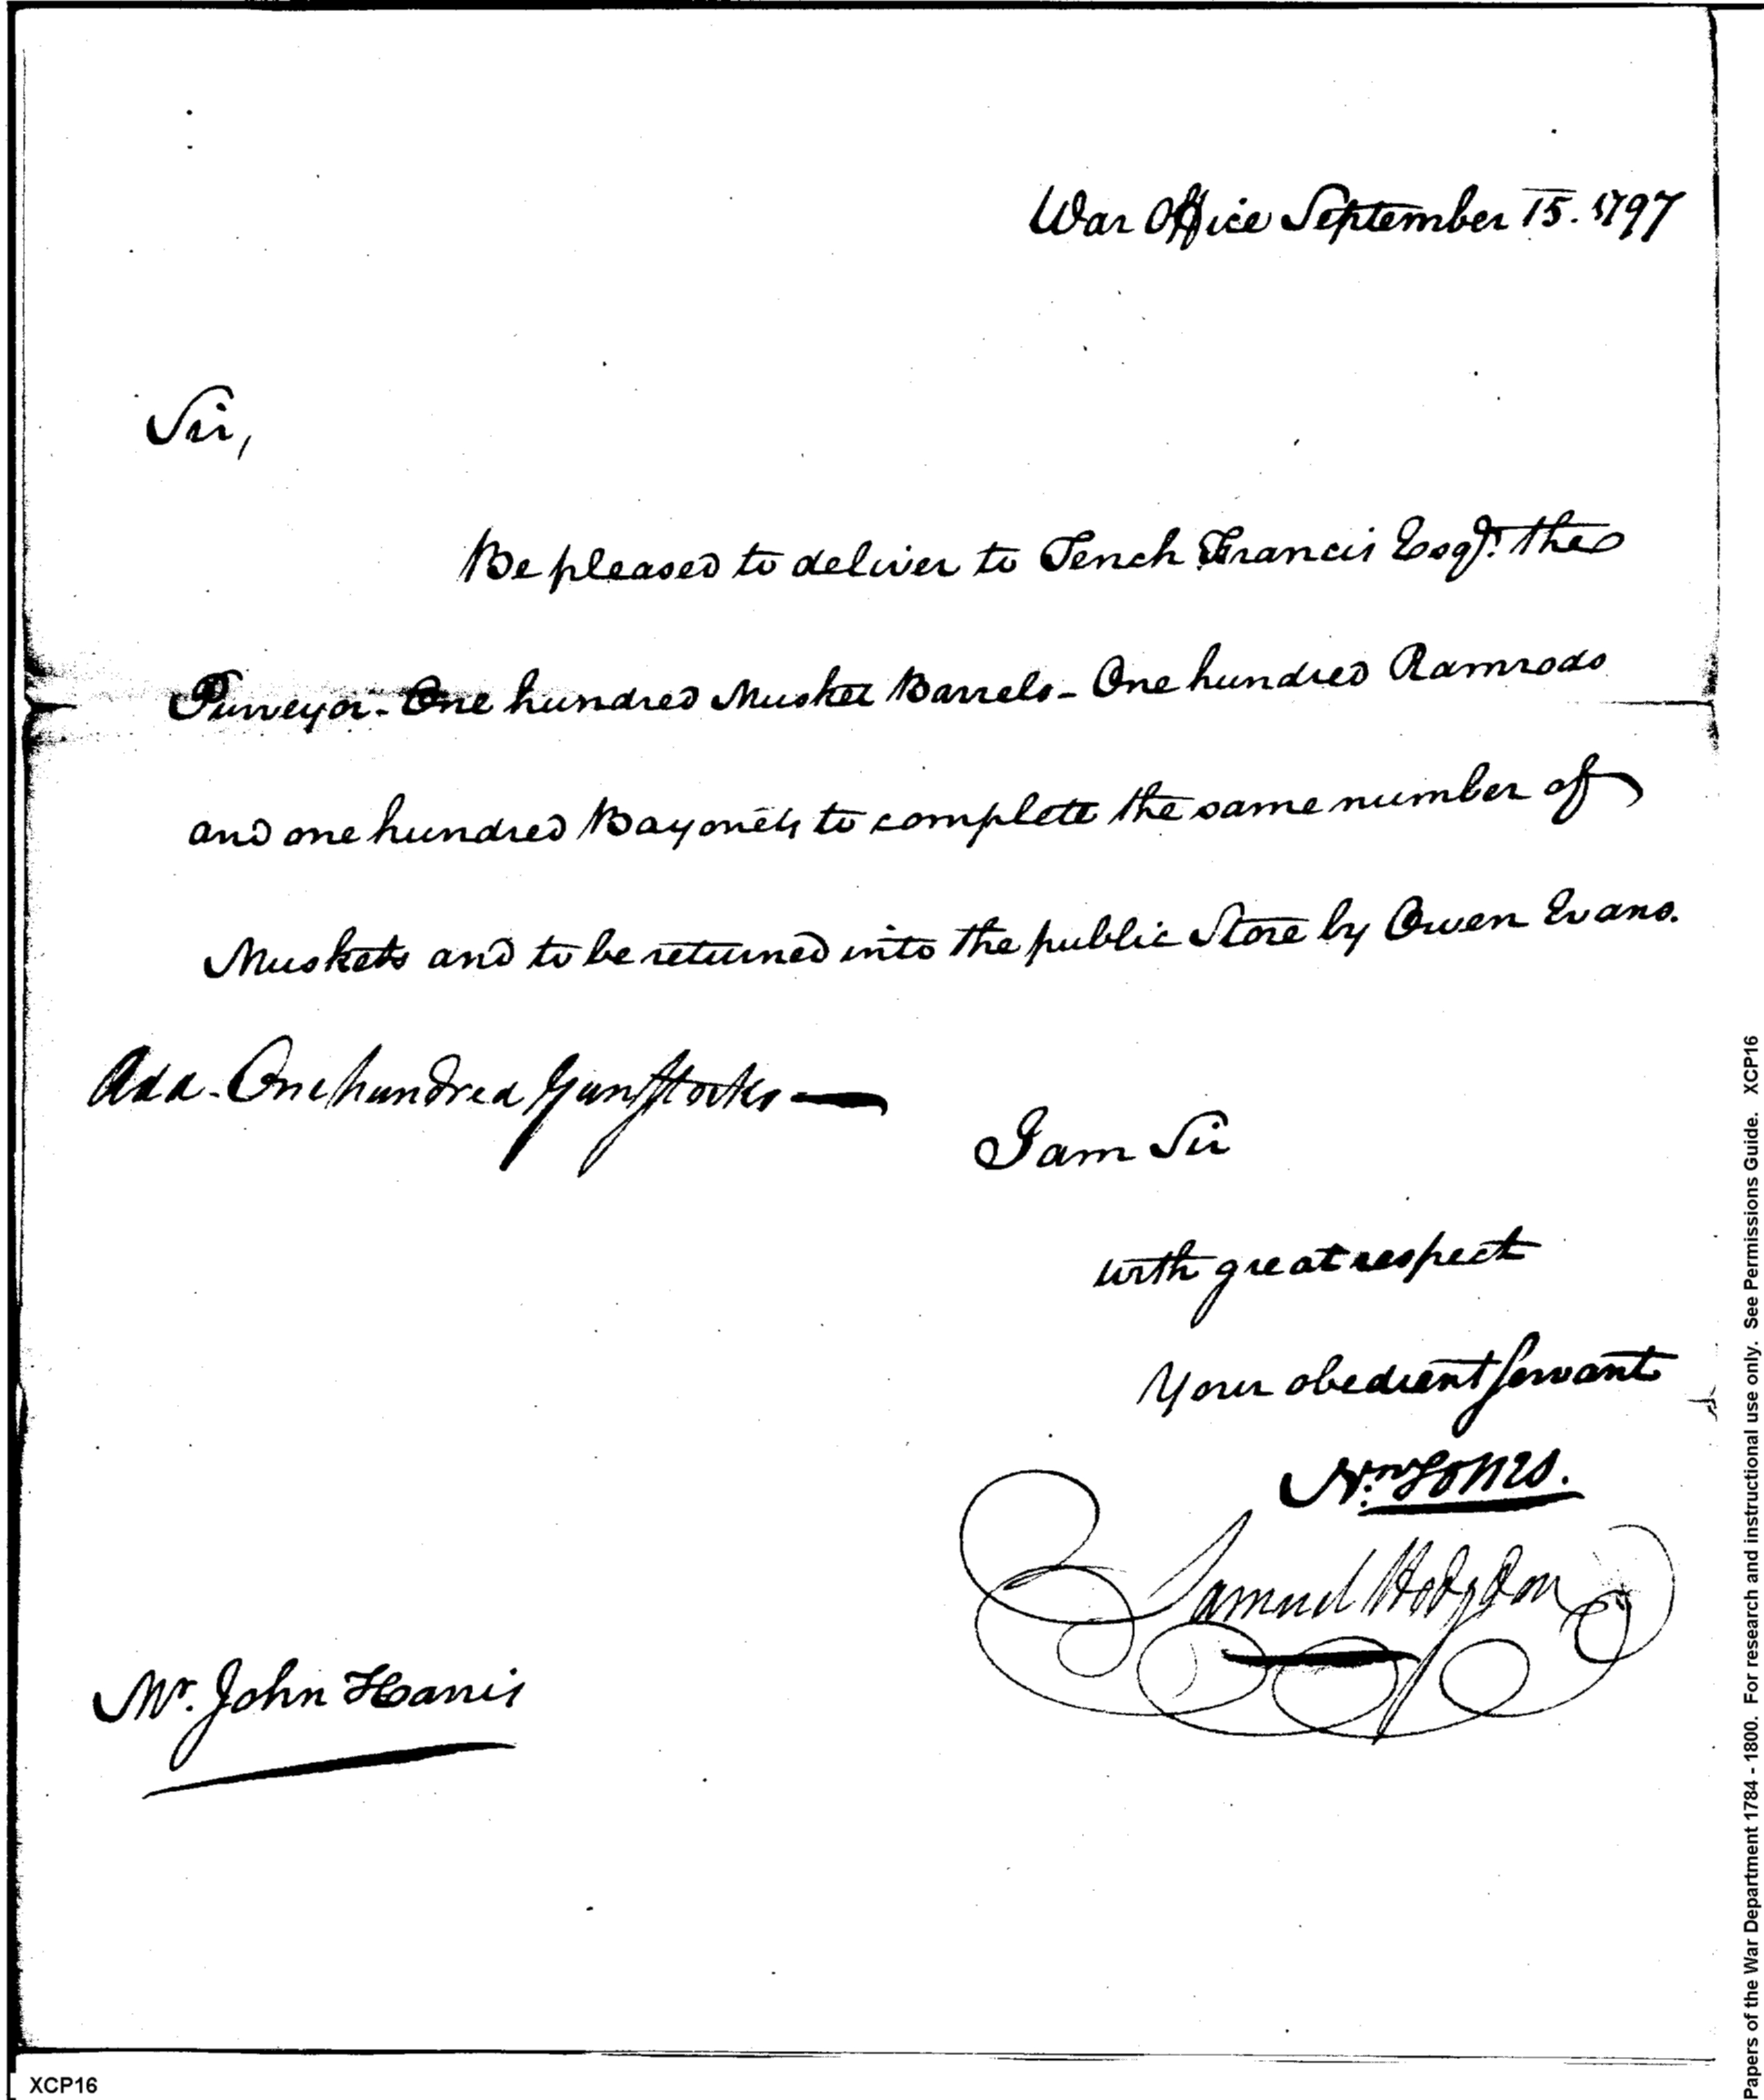 War Office September 15. 1797
Sir,
Be pleased to deliver to Tench Francis Esqr. the
Purveyor - One hundred Musket Barrels - One hundred Ramrods
and one hundred Bayonets to complete the same number of
Muskets and to be returned into the public Store by Owen Evans.
Add - One hundred Gunstocks —
I am Sir
with great respect
Your obedient servant
Nn. Jones.
Samuel Hodgdon
Mr. John Harris
XCP16
Papers of the War Department 1784 - 1800. For research and instructional use only. See Permissions Guide. XCP16